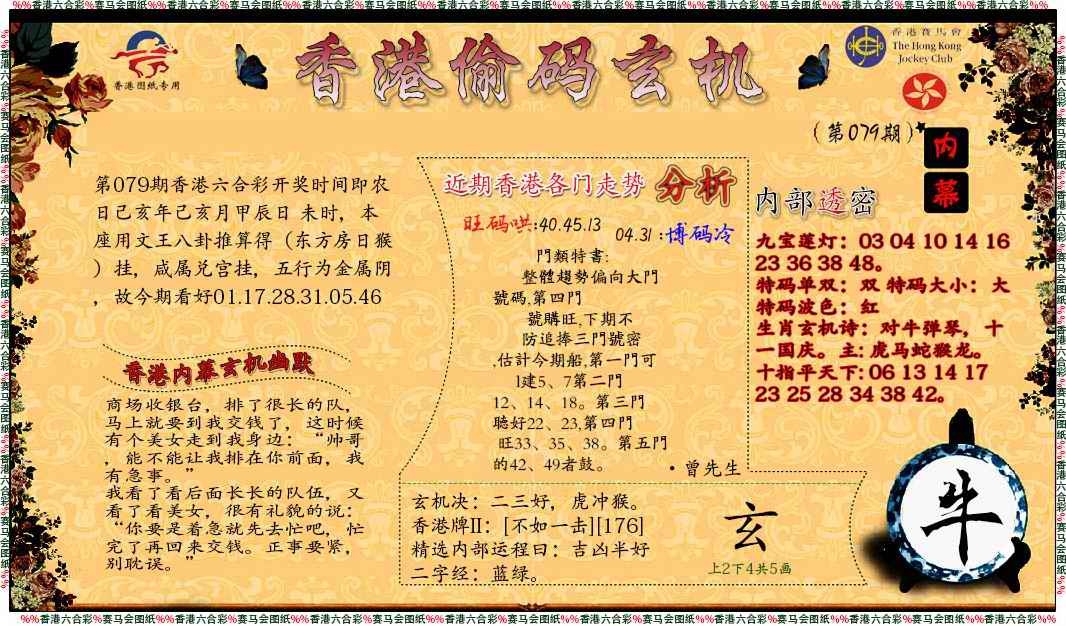 %%香港六合彩%赛马会图纸%%香港六合彩%赛马会图纸%%香港六合彩%赛马会图纸%%香港六合彩%赛马会图纸%%香港六合彩%赛马会图纸%%香港六合彩%赛马会图纸%%香港六合彩%%
香港图纸专用
香港偷码玄机
香港賽馬會
The Hong Kong
Jockey Club
(第079期)
内幕
第079期香港六合彩开奖时间即农
日己亥年己亥月甲辰日 未时，本
座用文王八卦推算得（东方房日猴
）挂，咸属兑宫挂，五行为金属阴
，故今期看好01.17.28.31.05.46
香港内幕玄机幽默
商场收银台，排了很长的队，
马上就要到我交钱了，这时候
有个美女走到我身边：“帅哥
，能不能让我排在你前面，我
有急事。”
我看了看后面长长的队伍，又
看了看美女，很有礼貌的说：
“你要是着急就先去忙吧，忙
完了再回来交钱。正事要紧，
别耽误。”
近期香港各门走势 分析
旺码哄:40.45.13
04.31:博码冷
門類特書:
整體趨勢偏向大門
號碼,第四門
號購旺,下期不
防追捧三門號密
,估計今期船,第一門可
1建5、7第二門
12、14、18。第三門
聽好22、23,第四門
旺33、35、38。第五門
的42、49者鼓。
·曾先生
玄机决：二三好，虎冲猴。
香港牌II：[不如一击][176]
精选内部运程日：吉凶半好
二字经：蓝绿。
玄
上2下4共5画
内部透密
九宝莲灯：03 04 10 14 16
23 36 38 48。
特码单双：双 特码大小：大
特码波色：红
生肖玄机诗：对牛弹琴，十
一国庆。主: 虎马蛇猴龙。
十指平天下: 06 13 14 17
23 25 28 34 38 42。
牛
%%香港六合彩%赛马会图纸%%香港六合彩%赛马会图纸%%香港六合彩%赛马会图纸%%香港六合彩%赛马会图纸%%香港六合彩%赛马会图纸%%香港六合彩%赛马会图纸%%香港六合彩%%